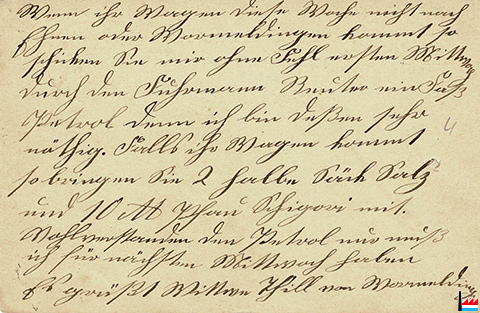 Wenn ihr Wagen diese Woche nicht nach
Ehnen oder Wormeldingen kommt so
schicken Sie mir ohne Fehl ersten Mittwoch
durch den Fuhrmann Reuter ein Faß
Petrol denn ich bin deßen sehr
nöthig. Falls ihr Wagen kommt
so bringen Sie 2 halbe Säck Salz
und 10 ℔ Schigori mit.
Wohlverstanden den Petrol nur muß
ich für nächsten Mittwoch haben
Es grüßt Wittwe Thill von Wormeldingen